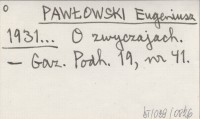 o
PAWŁOWSKI Eugeniusz
1931... O zwyczajach.
— Gaz. Podh. 19, nr 41.